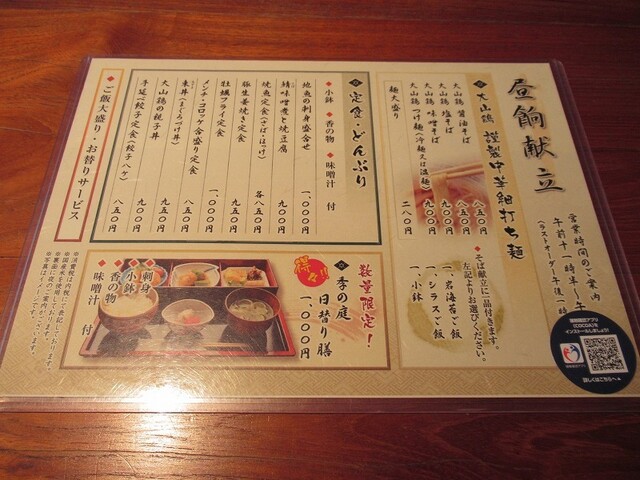 昼餉献立
営業時間のご案内
午前十一時半〜午
(ラストオーダー午後一時
◆大山鶏 謹製中華細打ち麺
大山鶏 醤油そば 八五〇円
大山鶏 塩そば 八五〇円
大山鶏 味噌そば 九〇〇円
大山鶏 つけ麺(冷麺又は温麺) 九〇〇円
麺大盛り 二八〇円
◆そば献立に一品付きます。
左記よりお選びください。
一、岩海苔ご飯
一、シラスご飯
一、小鉢
◆定食・どんぶり
◆小鉢 ◆香の物 ◆味噌汁 付
地魚の刺身盛合せ 一、〇〇〇円
鯖味噌煮と焼豆腐 九〇〇円
焼魚定食(さば・ほっけ) 各八五〇円
豚生姜焼き定食 九五〇円
牡蠣フライ定食 一、〇〇〇円
メンチ・コロッケ合盛り定食 九五〇円
束丼(まぐろづけ丼) 八五〇円
大山鶏の親子丼 九〇〇円
手延べ餃子定食(餃子八ケ) 八五〇円
◆ご飯大盛り・お替りサービス
数量限定!
得々!!
季の庭
日替り膳
一、〇〇〇円
◆刺身
◆小鉢
◆香の物
◆味噌汁 付
※消費税は内税にて表記しております。
※国産米を使用しております。
※裏面に夜のご案内が有ります。
※写真はイメージです。
接触確認アプリ
(COCOA)を
インストールしましょう!
詳しくはこちらへ